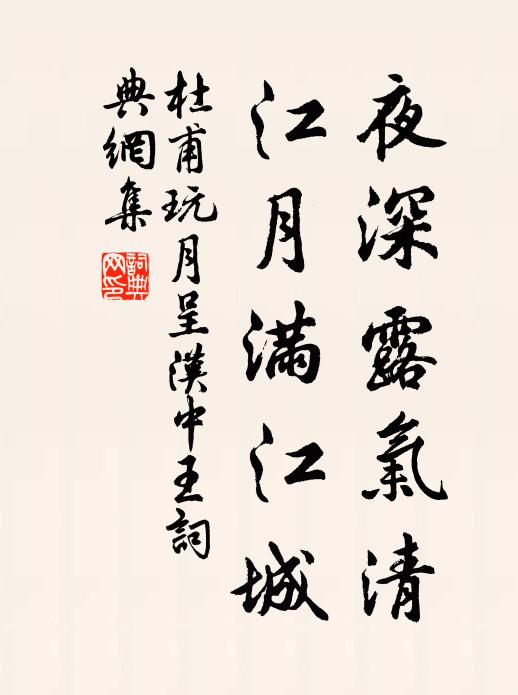 夜深露氣清
江月滿江城
杜甫玩月呈漢中王詞
典網集
詞典网印